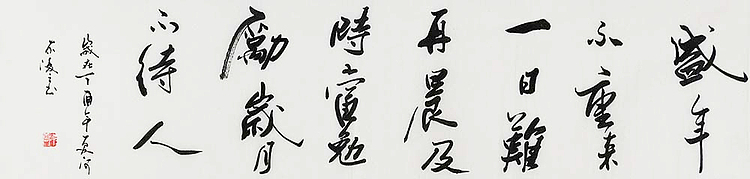 盛年
不重来
一日難
再晨及
時當勉
勵歲月
不待人
歲在丁酉年夏河